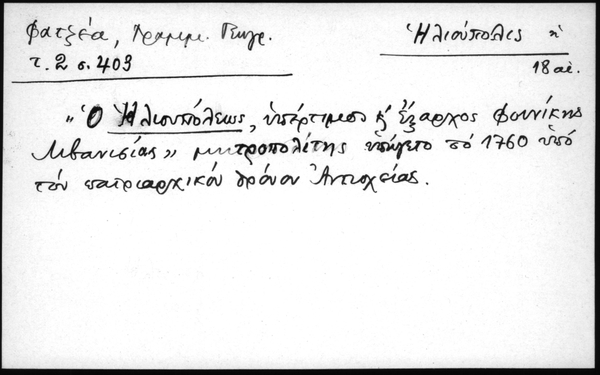 Φατζέα, Γραμμ. Γεωγρ.
τ. 2 σ. 403
Ἡλιούπολις ἡ
18 αἰ.
"Ὁ Ἡλιουπόλεως, ὑπέρτιμος κ' ἔξαρχος Φοινίκης
Λιβανισίας" μητροπολίτης ὑπήγετο τό 1760 ὑπό
τόν πατριαρχικόν θρόνον Ἀντιοχείας.